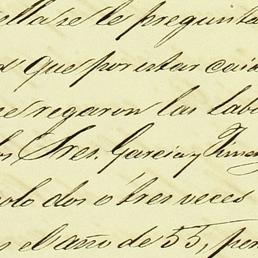 ella se le pregunta
que por estar caid
se regaron las labo
los Sres. Garcia y Ximen
solo dos o tres veces
el año de 55, per